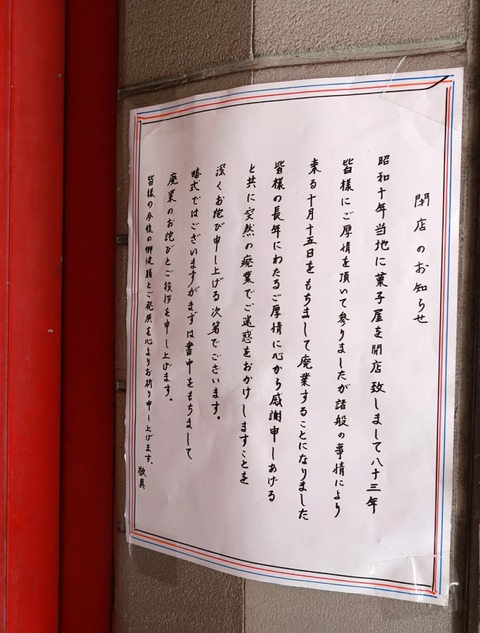 閉店のお知らせ
昭和十年当地に菓子屋を開店致しまして八十三年
皆様にご厚情を頂いて参りましたが諸般の事情により
来る十月十五日をもちまして廃業することになりました
皆様の長年にわたるご厚情に心から感謝申しあげる
と共に突然の廃業でご迷惑をおかけしますことを
深くお詫び申し上げる次第でございます。
略式ではございますがまずは書中をもちまして
廃業のお詫びとご挨拶を申し上げます。
皆様の今後の御健勝とご発展を心よりお祈り申し上げます。敬具